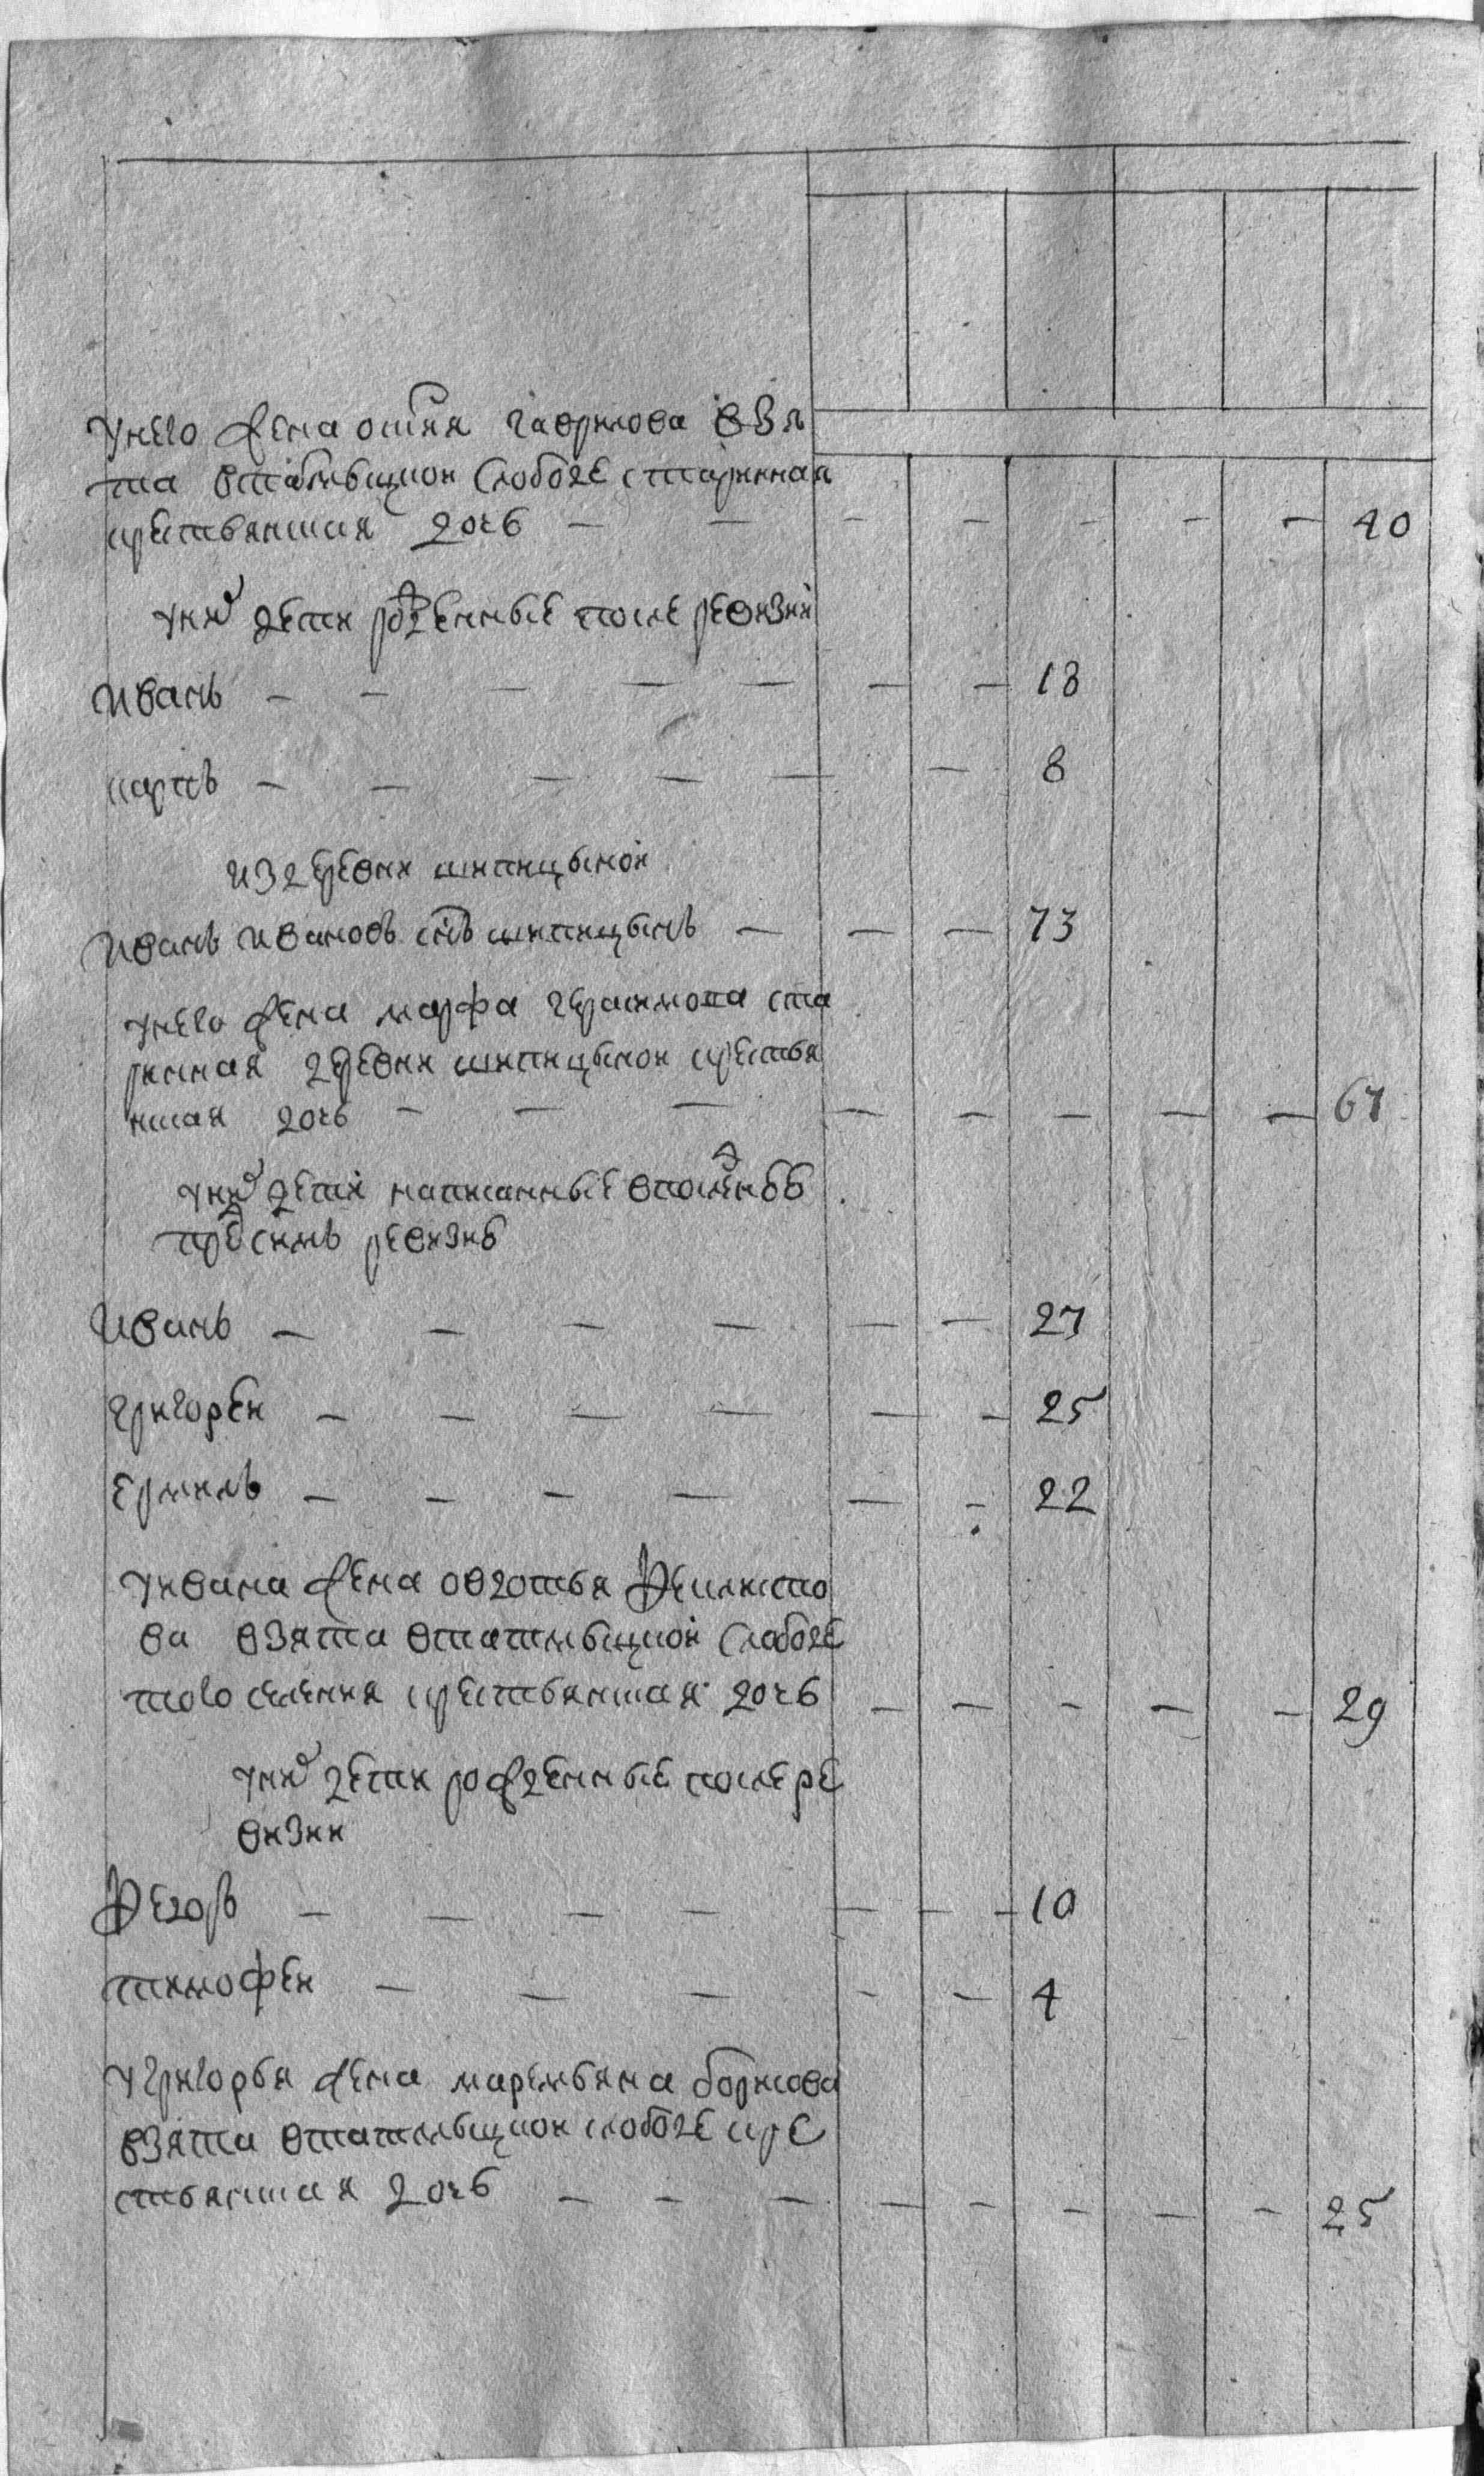 у него жена офимья гаврилова взя
та втатмыцкой слободе старинная
крестьянская дочь — — — — — — — 40
у них дети рожденные после ревизии
Иванъ — — — — — — — 18
карпъ — — — — — — 8
из деревни шипицыной
Иванъ Ивановъ снъ шипицынъ — — — 73
у него жена марфа герасимова ста
ринная деревни шипицыной крестья
нская дочь — — — — — — — — 67
у них дети написанные в последнюю
пред симъ ревизию
Иванъ — — — — — — 27
григорей — — — — — — 25
ермилъ — — — — — — 22
у ивана жена овдотья Феклисто
ва взята втатмыцкой слободе
того селения крестьянская дочь — — — — — 29
у них дети рожденные после ре
визии
Федоръ — — — — — — — 10
тимофей — — — — — 4
у григорья жена маремьяна борисова
взята втатмыцкой слободе кре
стьянская дочь — — — — — — — — 25